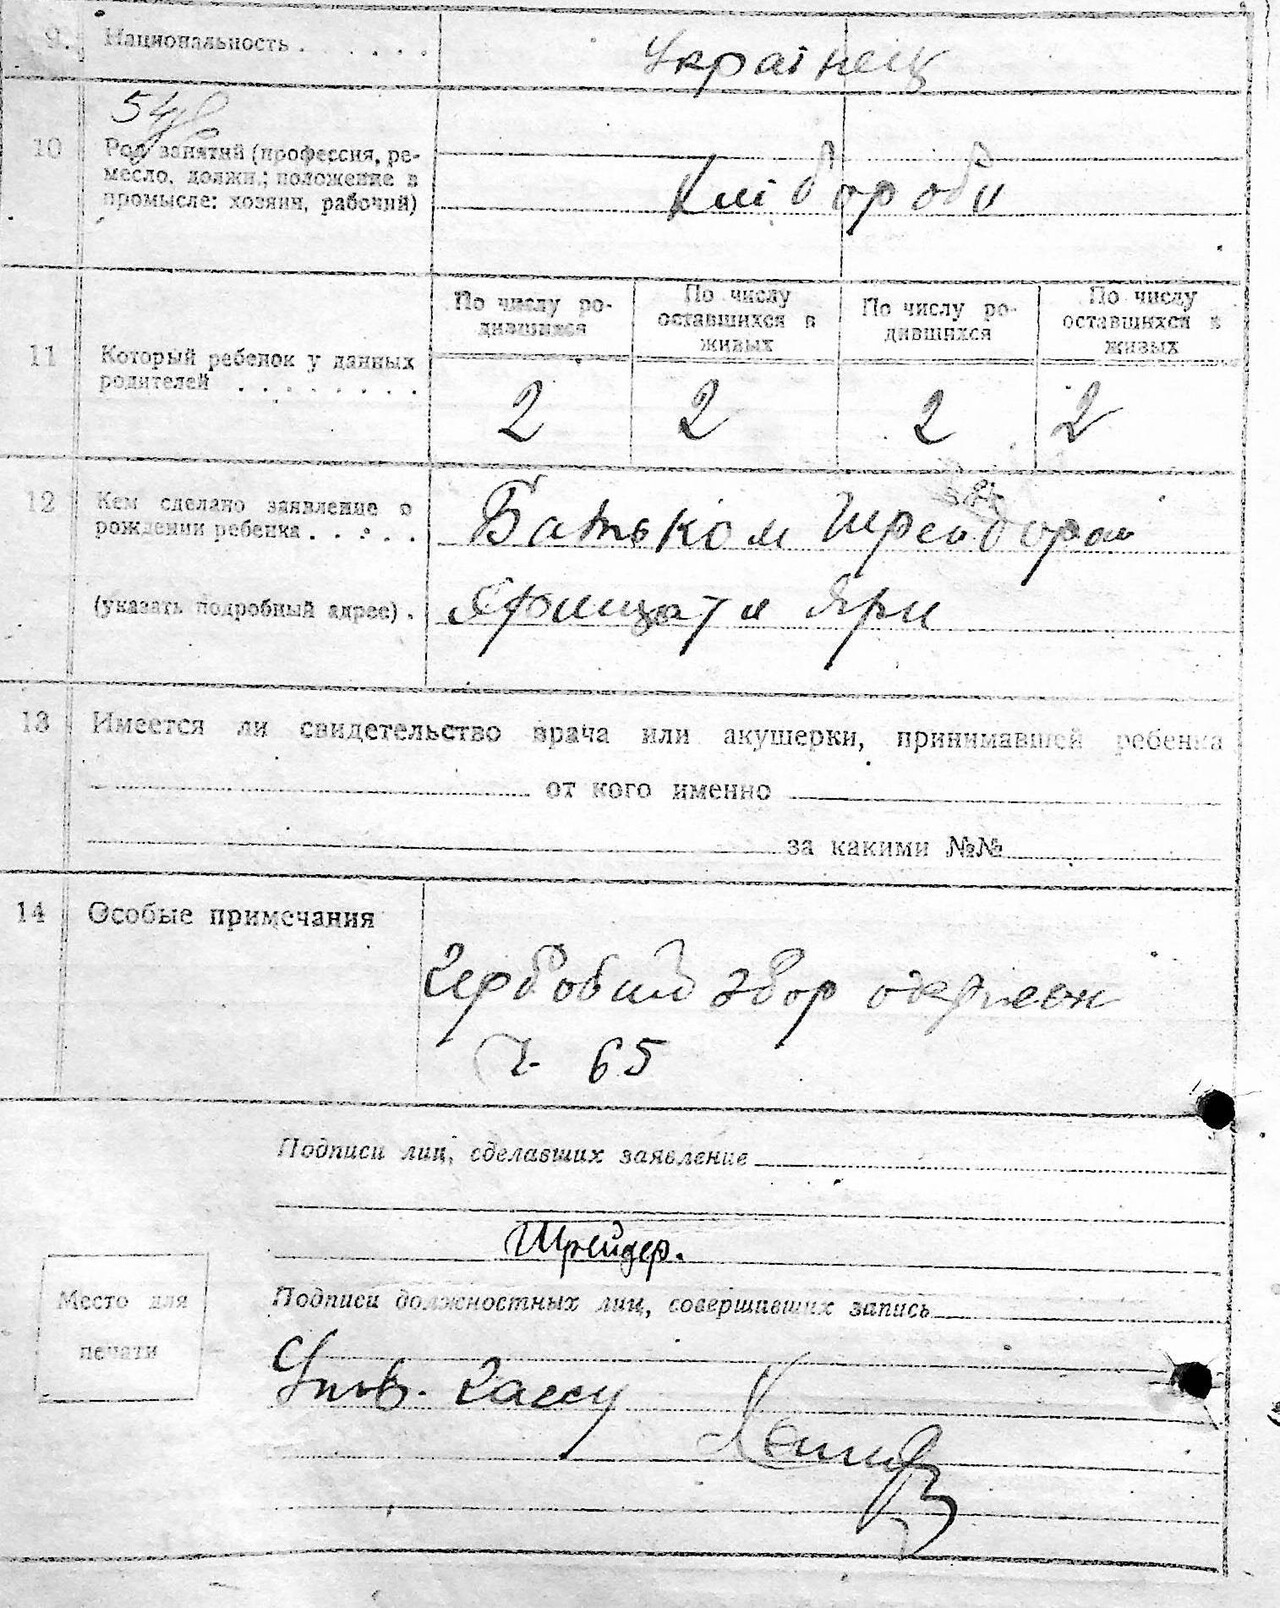 9. Национальность . . . . . .
Українец
10 Род занятий (профессия, ре-
месло, должн.; положение в
промысле: хозяин, рабочий)
Хліборобы
11 Который ребенок у данных
родителей . . . . . . . .
По числу ро-
дившихся
По числу
оставшихся в
живых
По числу ро-
дившихся
По числу
оставшихся в
живых
2 2 2 2
12 Кем сделано заявление о
рождении ребенка . . . . .
Батьком
(указать подробный адрес) .
Яри
13 Имеется ли свидетельство врача или акушерки, принимавшей ребенка
от кого именно
за какими №№
14 Особые примечания
Гербовий збор
ч. 65
Подписи лиц, сделавших заявление
Шрейдер.
Подписи должностных лиц, совершивших запись
Место для
печати